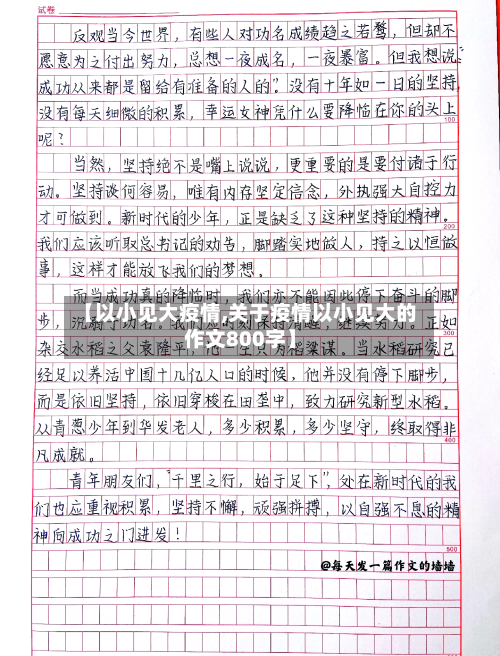 试卷
反观当今世界，有些人对功名成绩趋之若鹜，但却不
愿意为之付出努力，总想一夜成名，一夜暴富。但我想说:“
成功从来都是留给有准备的人的”。没有十年如一日的坚持，
没有每天细微的积累，幸运女神凭什么要降临在你的头上
100
呢？
当然，坚持绝不是嘴上说说，更重要的是要付诸于行
动。坚持谈何容易，唯有内存坚定信念，外执强大自控力
才可做到。新时代的少年，正是缺乏了这种坚持的精神。
200
我们应该听取总书记的劝告，脚踏实地做人，持之以恒做
事，这样才能放飞我们的梦想。
而当成功真的降临时，我们亦不能因此停下奋斗的脚
【以小见大疫情,关于疫情以小见大的
步，沉溺于功名。我们应时刻保持清醒，继续努力。正如
300
作文800字】
杂交水稻之父袁隆平，他一生只为稻粱谋。当水稻研究已
经足以养活中国十几亿人口的时候，他并没有停下脚步，
而是依旧坚持，依旧穿梭在田垄中，致力研究新型水稻。
从青葱少年到华发老人，多少积累，多少坚守，终取得非
400
凡成就。
青年朋友们，“千里之行，始于足下”，处在新时代的我
们也应重视积累，坚持不懈，顽强拼搏，以自强不息的精
神向成功之门进发！
500
@每天发一篇作文的墙墙